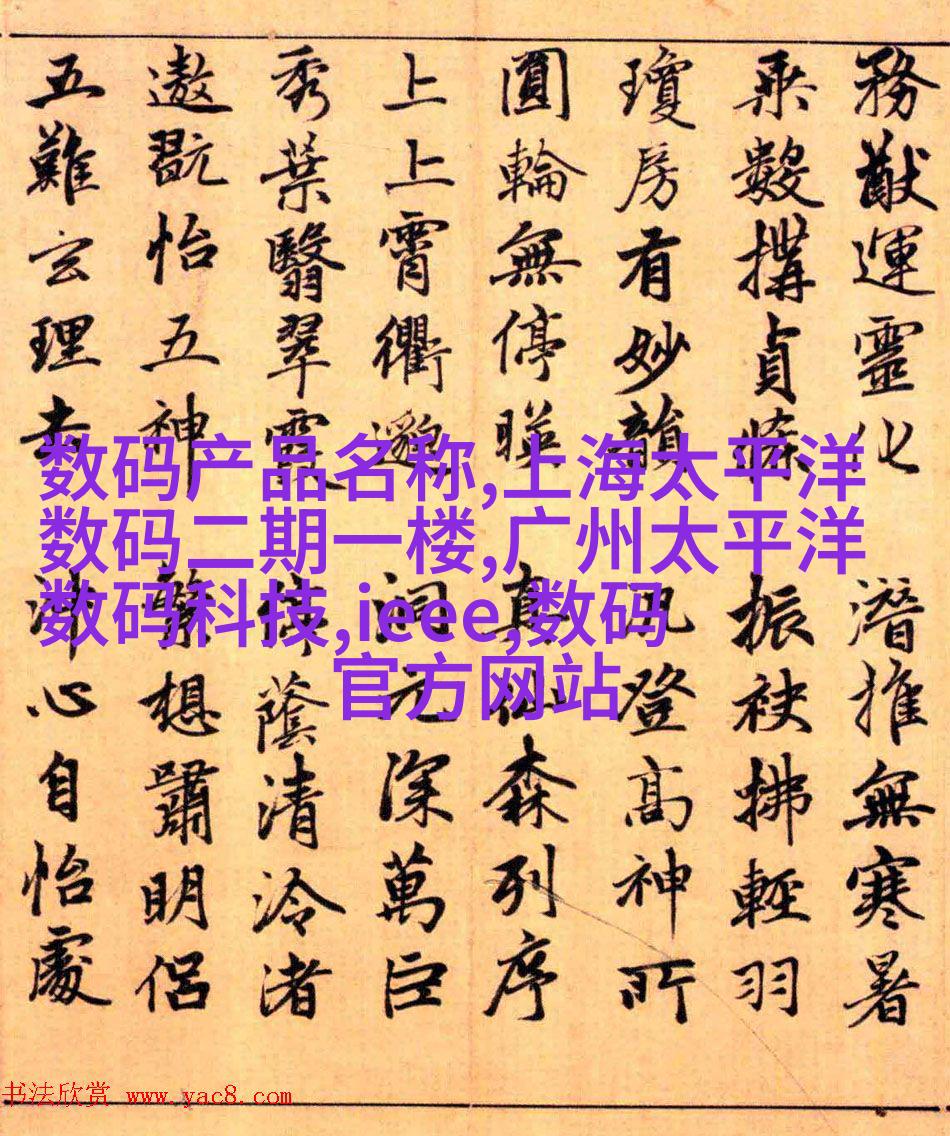 務猷運靈化 潛推無寒暑
乘數搆貞 振袂拂輕羽
瓊房有妙韻 登高神所
圓輪無停暎 真仙森列序
上上霄衢邈 洞元深萬臣
秀葉翳翠霞 蔭清泠渚
遨翫怡五神 想嘯明侶
五難玄理去 沖心自怡處
数码产品名称,上海太平洋
数码二期一楼,广州太平洋
数码科技,ieee,数码
官方网站
书法欣赏 www.yac8.com